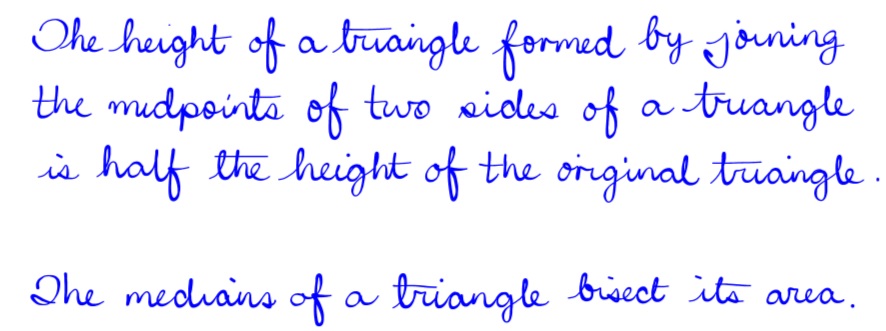 The height of a triangle formed by joining
the midpoints of two sides of a triangle
is half the height of the original triangle.
The medians of a triangle bisect its area.